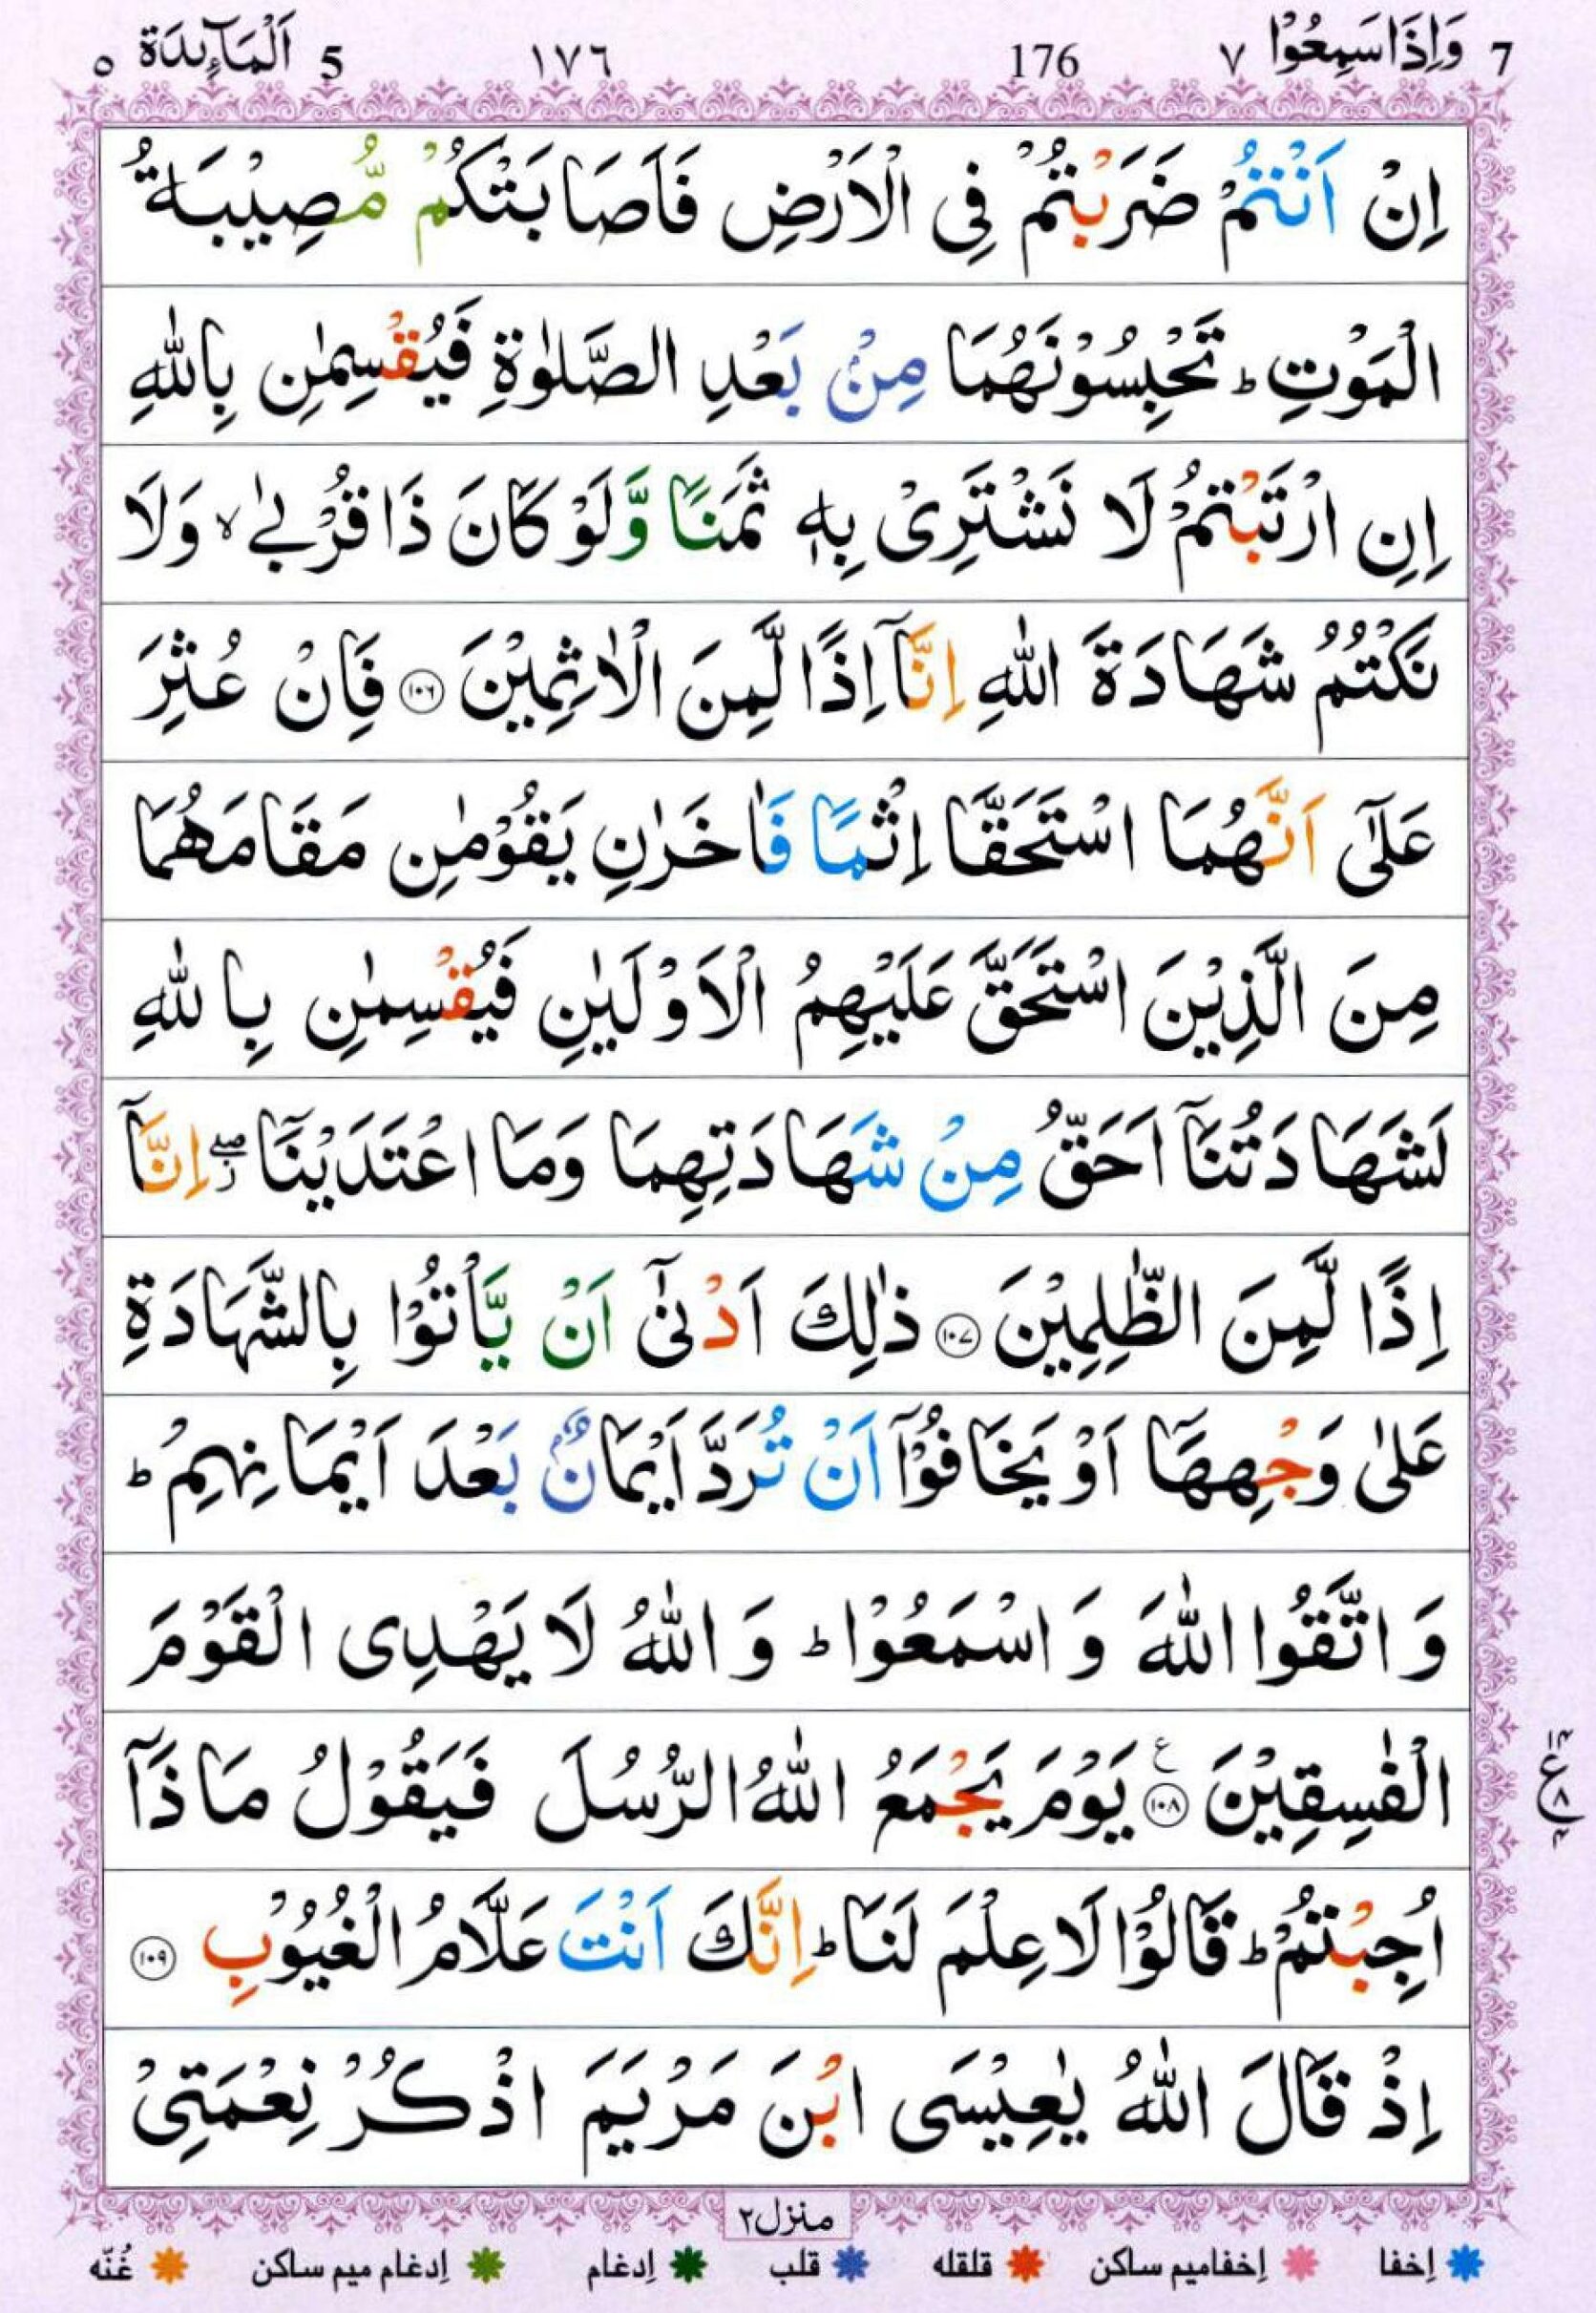 7 وَاِذَاسَمِعُوْا ٧ 176 ١٧٦ 5 اَلْمَآىِٕدَة ٥
اِنْ اَنْتُمْ ضَرَبْتُمْ فِى الْاَرْضِ فَاَصَابَتْكُمْ مُّصِيْبَةُ
الْمَوْتِ ؕ تَحْبِسُوْنَهُمَا مِنْۢ بَعْدِ الصَّلٰوةِ فَيُقْسِمٰنِ بِاللّٰهِ
اِنِ ارْتَبْتُمْ لَا نَشْتَرِىْ بِهٖ ثَمَنًا وَّلَوْ كَانَ ذَا قُرْبٰى ۙ وَلَا
نَكْتُمُ شَهَادَةَ اللّٰهِ اِنَّاۤ اِذًا لَّمِنَ الْاٰثِمِيْنَ ﴿١٠٦﴾ فَاِنْ عُثِرَ
عَلٰٓى اَنَّهُمَا اسْتَحَقَّاۤ اِثْمًا فَاٰخَرٰنِ يَقُوْمٰنِ مَقَامَهُمَا
مِنَ الَّذِيْنَ اسْتَحَقَّ عَلَيْهِمُ الْاَوْلَيٰنِ فَيُقْسِمٰنِ بِاللّٰهِ
لَشَهَادَتُنَاۤ اَحَقُّ مِنْ شَهَادَتِهِمَا وَمَا اعْتَدَيْنَاۤ ۖز اِنَّاۤ
اِذًا لَّمِنَ الظّٰلِمِيْنَ ﴿١٠٧﴾ ذٰلِكَ اَدْنٰٓى اَنْ يَّاْتُوْا بِالشَّهَادَةِ
عَلٰى وَجْهِهَاۤ اَوْ يَخَافُوْۤا اَنْ تُرَدَّ اَيْمَانٌۢ بَعْدَ اَيْمَانِهِمْ ؕ
وَاتَّقُوا اللّٰهَ وَاسْمَعُوْا ؕ وَاللّٰهُ لَا يَهْدِى الْقَوْمَ
الْفٰسِقِيْنَ ﴿١٠٨﴾ ع يَوْمَ يَجْمَعُ اللّٰهُ الرُّسُلَ فَيَقُوْلُ مَاذَاۤ
١٤ ع ٨ ٤
اُجِبْتُمْ ؕ قَالُوْا لَا عِلْمَ لَنَا ؕ اِنَّكَ اَنْتَ عَلَّامُ الْغُيُوْبِ ﴿١٠٩﴾
اِذْ قَالَ اللّٰهُ يٰعِيْسَى ابْنَ مَرْيَمَ اذْكُرْ نِعْمَتِىْ
منزل٢
اِخفا اِخفامیم ساکن قلقله قلب اِدغام اِدغام میم ساکن غُنّه